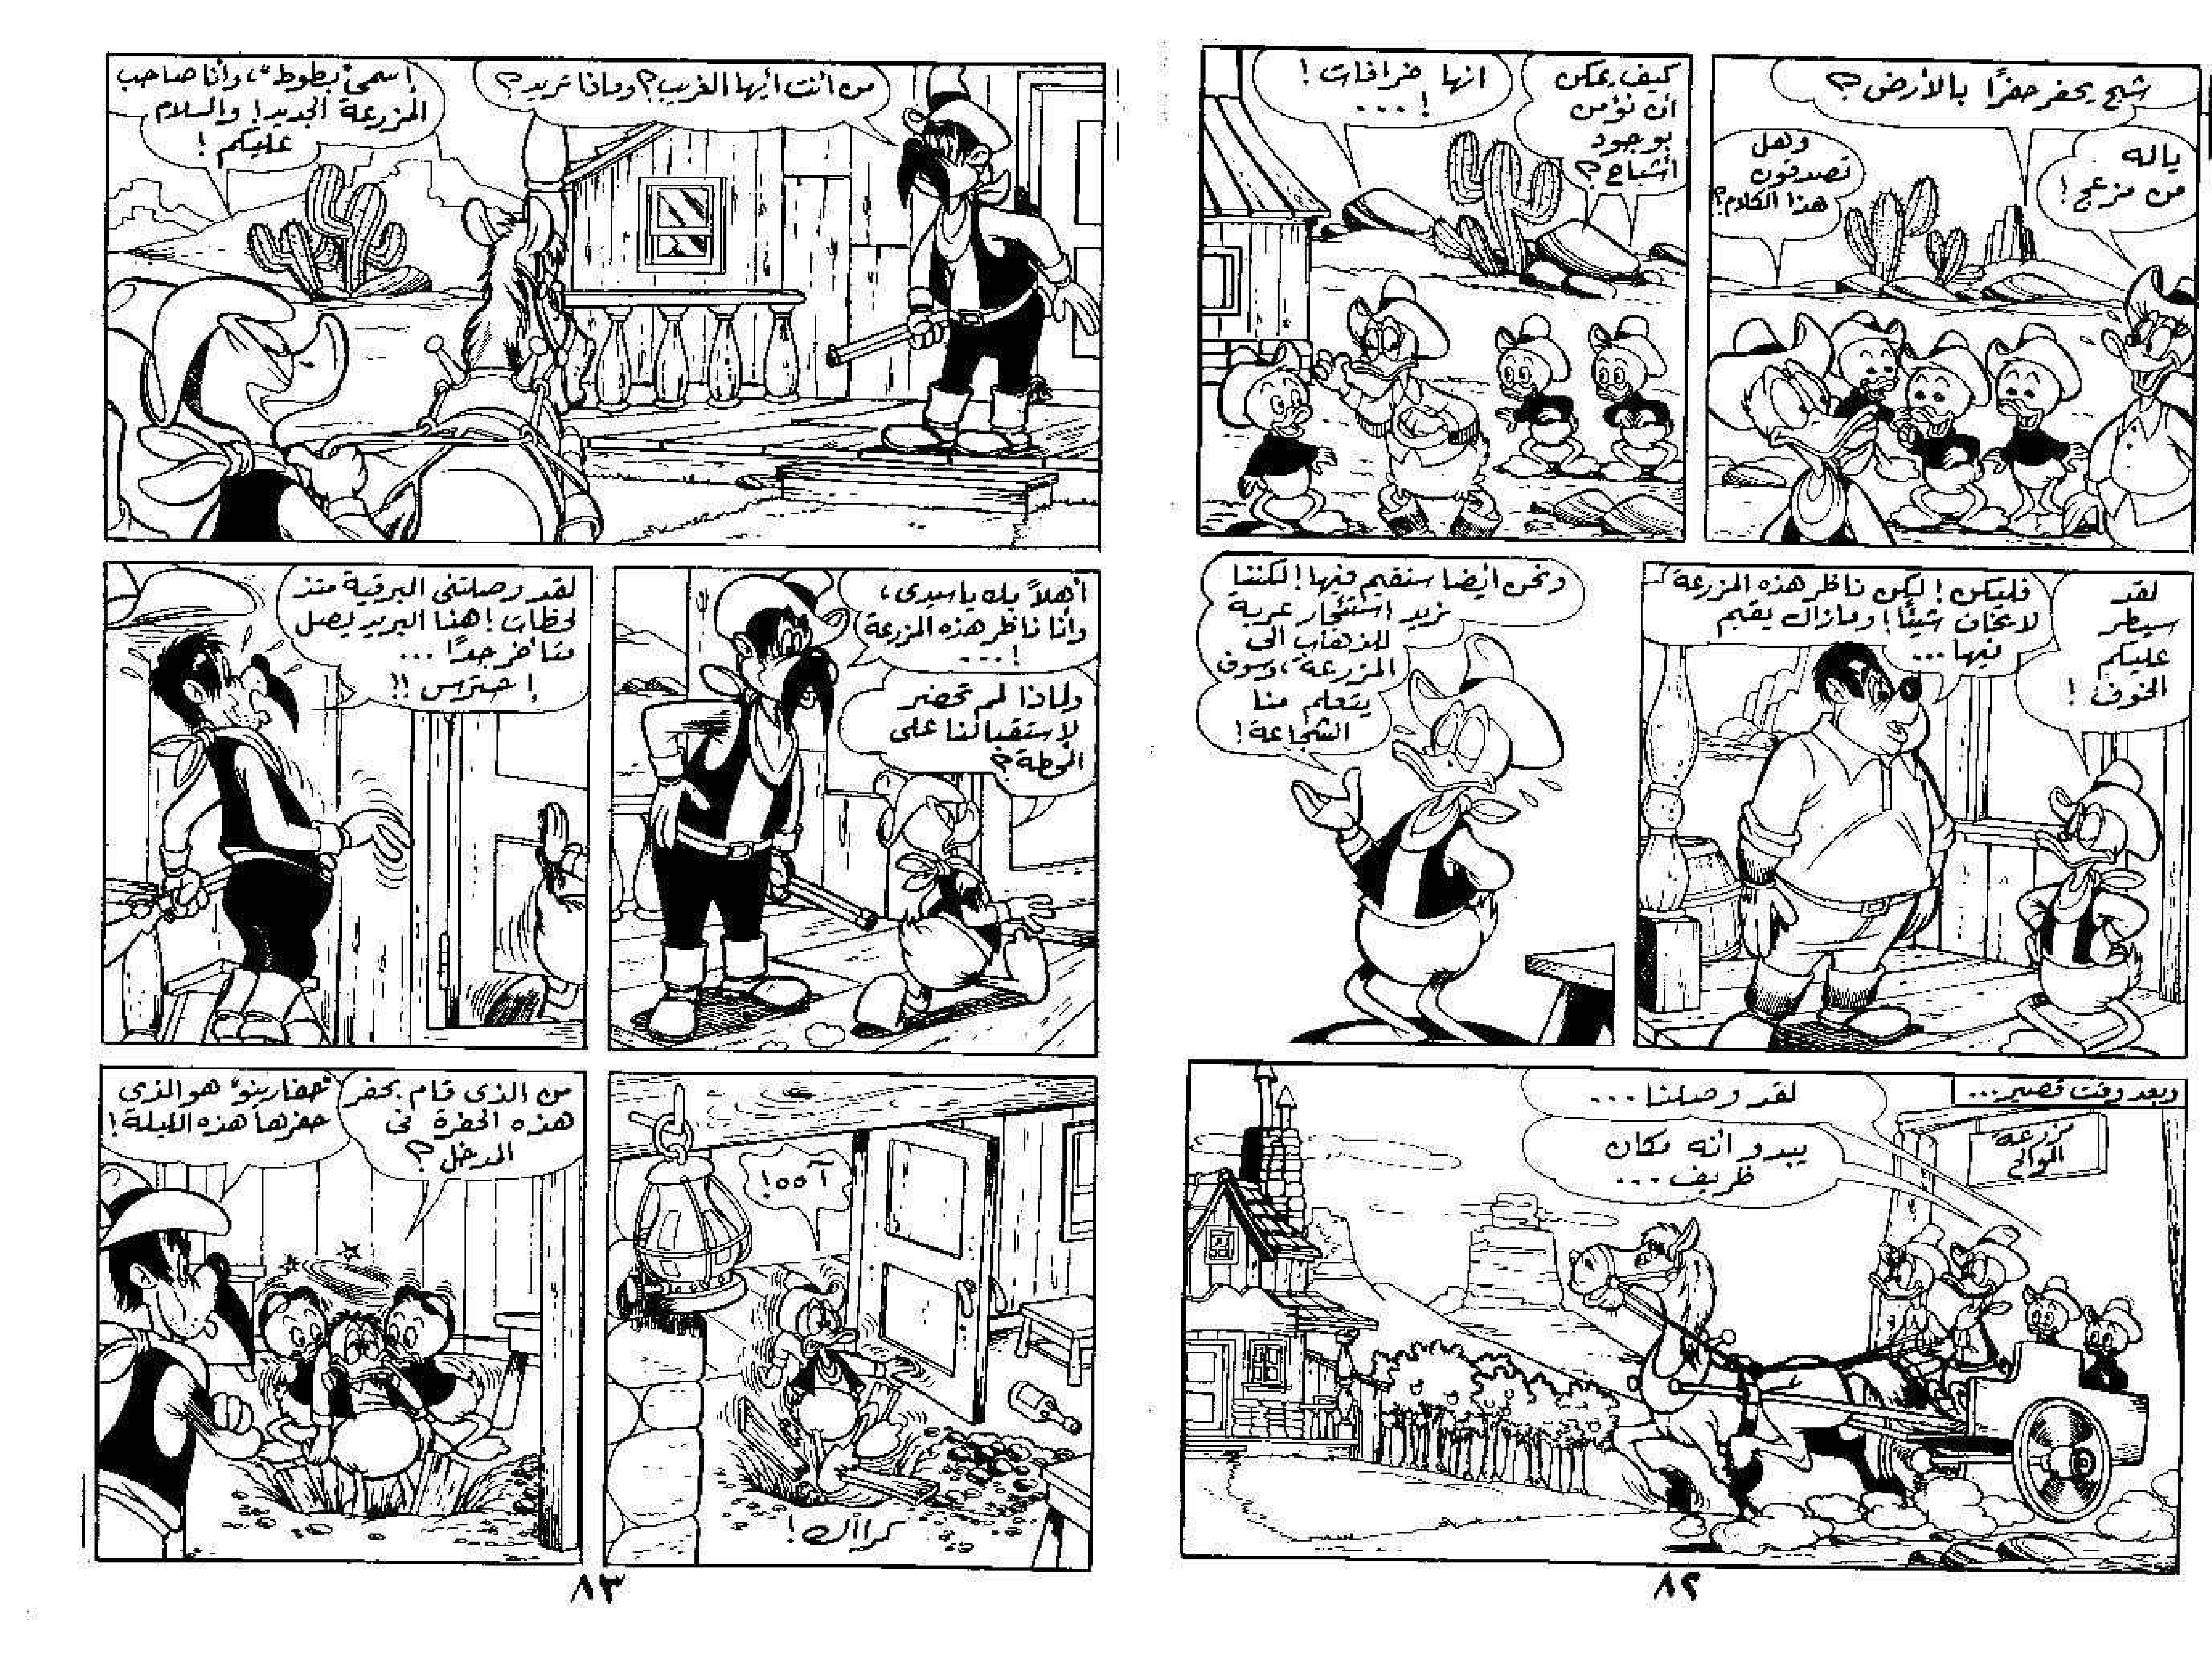 شبح يحفر حفرًا بالأرض؟
ياله
من مزعج!
وهل
تصدقون
هذا الكلام؟
كيف يمكن
أن نؤمن
بوجود
أشباح؟
انها خرافات!
!...
لقد
سيطر
عليكم
الخوف!
فليكن! لكن ناظر هذه المزرعة
لا يخاف شيئًا! ومازال يقيم
فيها...
ونحن أيضا سنقيم فيها! لكننا
نريد استئجار عربة
للذهاب الى
المزرعة، وسوف
يتعلم منا
الشجاعة!
وبعد وقت قصير...
لقد وصلنا...
يبدو انه مكان
ظريف...
مزرعة
الموالح
٨٢
من أنت أيها الغريب؟ وماذا تريد؟
إسمى "بطوط"، وأنا صاحب
المزرعة الجديد! والسلام
عليكم!
أهلاً بك ياسيدى،
وأنا ناظر هذه المزرعة
!...
ولماذا لم تحضر
لاستقبالنا على
المحطة؟
لقد وصلتنى البرقية منذ
لحظات! هنا البريد يصل
متأخر جدًا...
إحترس!!
آ ه ه!
كرااك!
من الذى قام بحفر
هذه الحفرة فى
المدخل؟
"حفارينو" هو الذى
حفرها هذه الليلة!
٨٣